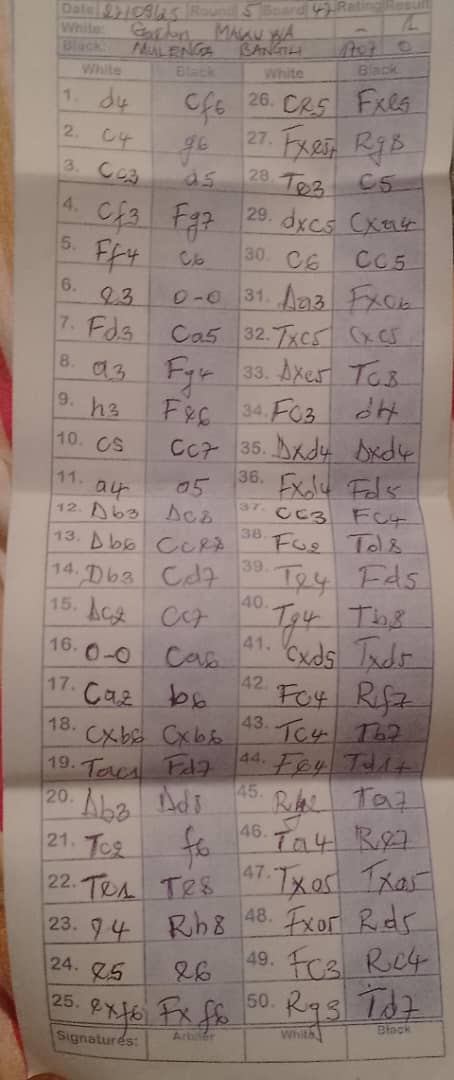 Date 27/09/25 Round 5 Board 47 Rating Result
White: Gordon MALAUWA - 1
Black: MULENGA BANGILI 1707 0
White Black White Black
1. d4 Cf6 26. CR5 Fxe5
2. c4 g6 27. Fxe5+ Rg8
3. Cc3 d5 28. Te3 C5
4. Cf3 Fg7 29. dxc5 Cxa4
5. Ff4 c6 30. C6 CC5
6. e3 0-0 31. Da3 Fxc6
7. Fd3 Ca5 32. Txc5 Cxc5
8. a3 Fg4 33. Dxc5 TC8
9. h3 Fe6 34. FC3 d4
10. c5 Cc7 35. Dxd4 Dxd4
11. a4 a5 36. Fxd4 Fd5
12. Db3 Dc8 37. CC3 FC4
13. Db6 Cce8 38. Fc2 Td8
14. Db3 Cd7 39. Te4 Fd5
15. Dc2 Cc7 40. Tg4 Tb8
16. 0-0 Ca6 41. Cxd5 Txd5
17. Ca2 b6 42. FC4 Rf7
18. Cxb6 Cxb6 43. TC4 Tb7
19. Tac1 Fd7 44. Fe4 Td1+
20. Db3 Dd8 45. Rh2 Ta7
21. Tc2 f6 46. Ta4 Re7
22. Te1 Te8 47. Txa5 Txa5
23. g4 Rh8 48. Fxa5 Rd5
24. e5 e6 49. FC3 Rc4
25. exf6 Fxf6 50. Rg3 Td7
Signatures: Arbiter White Black